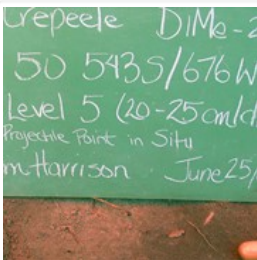 Crepeele DiMe-2
50 543S/676W
Level 5 (20-25cm/d
Projectile Point in Situ
m Harrison June 25/